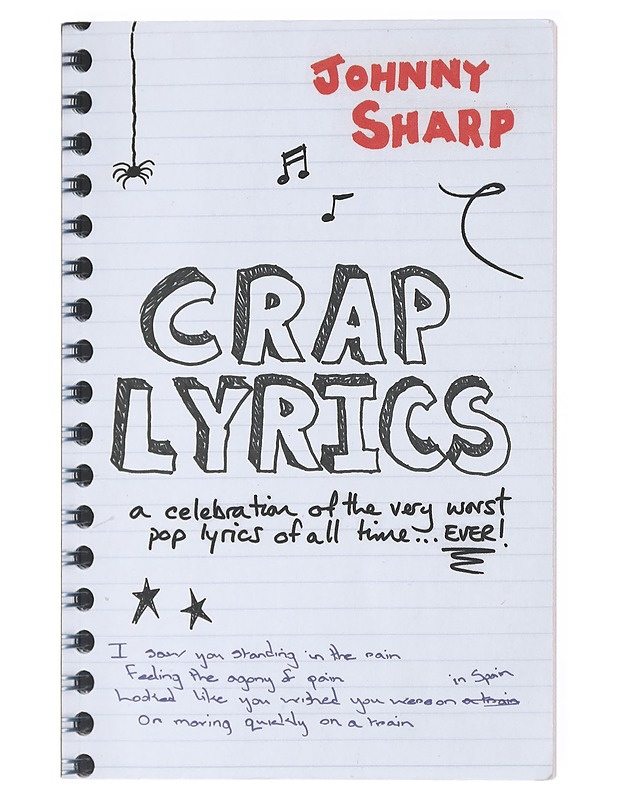 JOHNNY
SHARP
CRAP
LYRICS
a celebration of the very worst
pop lyrics of all time... EVER!
I saw you standing in the rain
Feeling the agony of pain
in Spain
Looked like you wished you were on a train
Or moving quickly on a train